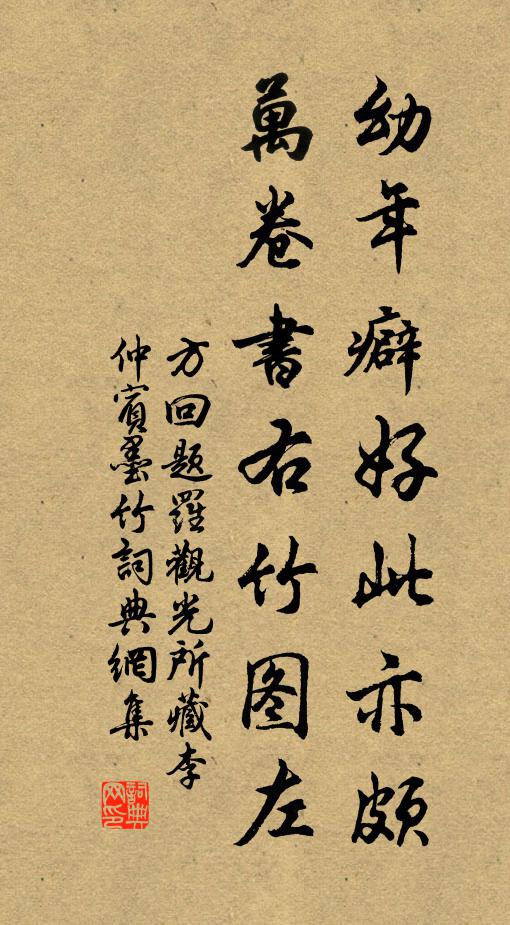 幼年癖好此亦頗
萬卷書右竹图左
方回题羅觀光所藏李
仲賓墨竹詞典網集
詞典网印